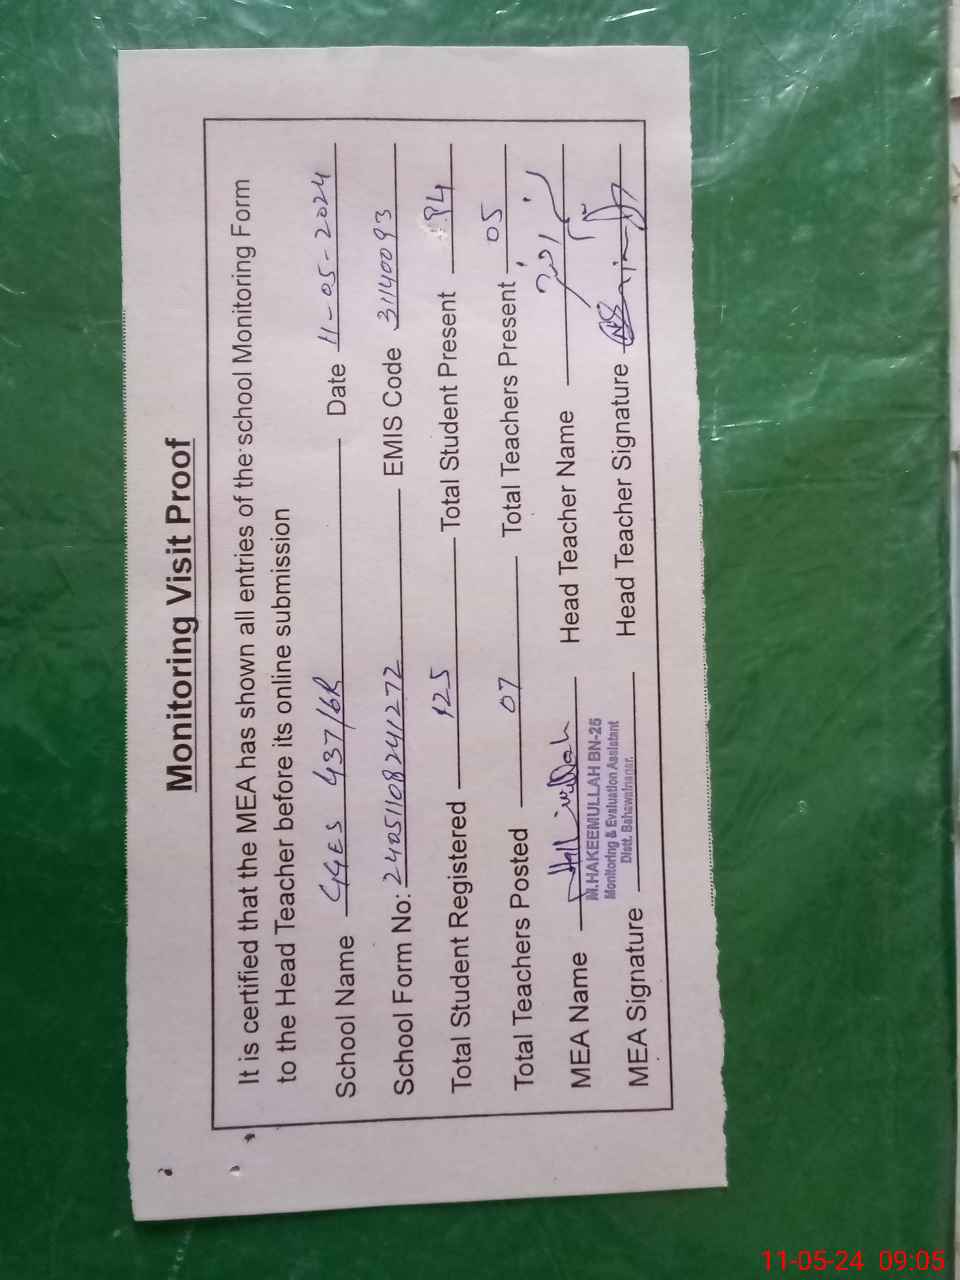 Monitoring Visit Proof
It is certified that the MEA has shown all entries of the school Monitoring Form
to the Head Teacher before its online submission
School Name GGES 437/6R Date 11-05-2024
School Form No: 24051108241272 EMIS Code 31140093
Total Student Registered 125 Total Student Present 94
Total Teachers Posted 07 Total Teachers Present 05
MEA Name Head Teacher Name
M.HAKEEMULLAH BN-25
Monitoring & Evaluation Assistant
Distt. Bahawalnagar.
MEA Signature Head Teacher Signature
11-05-24 09:05